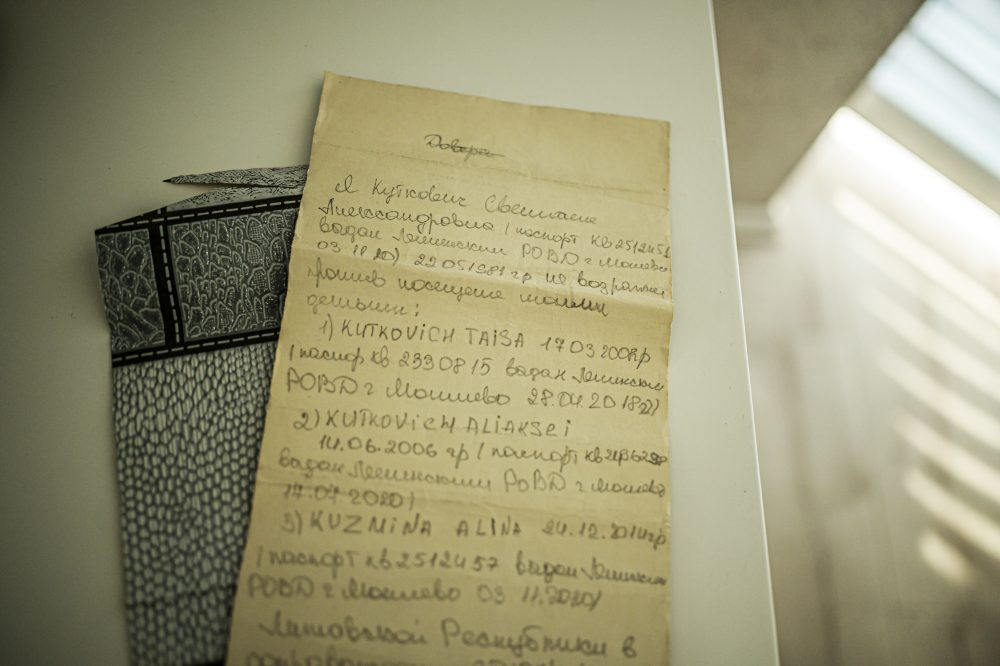 Довере
Я Куткович Светлана
Александровна (паспорт КВ2512451
выдан Ленинским РОВД г Могилево
03 11 20) 22 051981 гр не возражаю
против посещение моими
детьми:
1) KUTKOVICH TAISA 17 03 2002гр
(паспор КВ 2330815 выдан Ленинским
РОВД г Могилево 28.04.2018)
2) KUTKOVICH ALIAKSEI
14.06.2006 гр (паспорт КВ
выдан Ленинским РОВД г Могилево
17.07 2020)
3) KUZMINA ALINA 24.12.2014гр
(паспорт КВ2512457 выдан Ленинским
РОВД г Могилево 03 11.2020)
Литовской Республики в